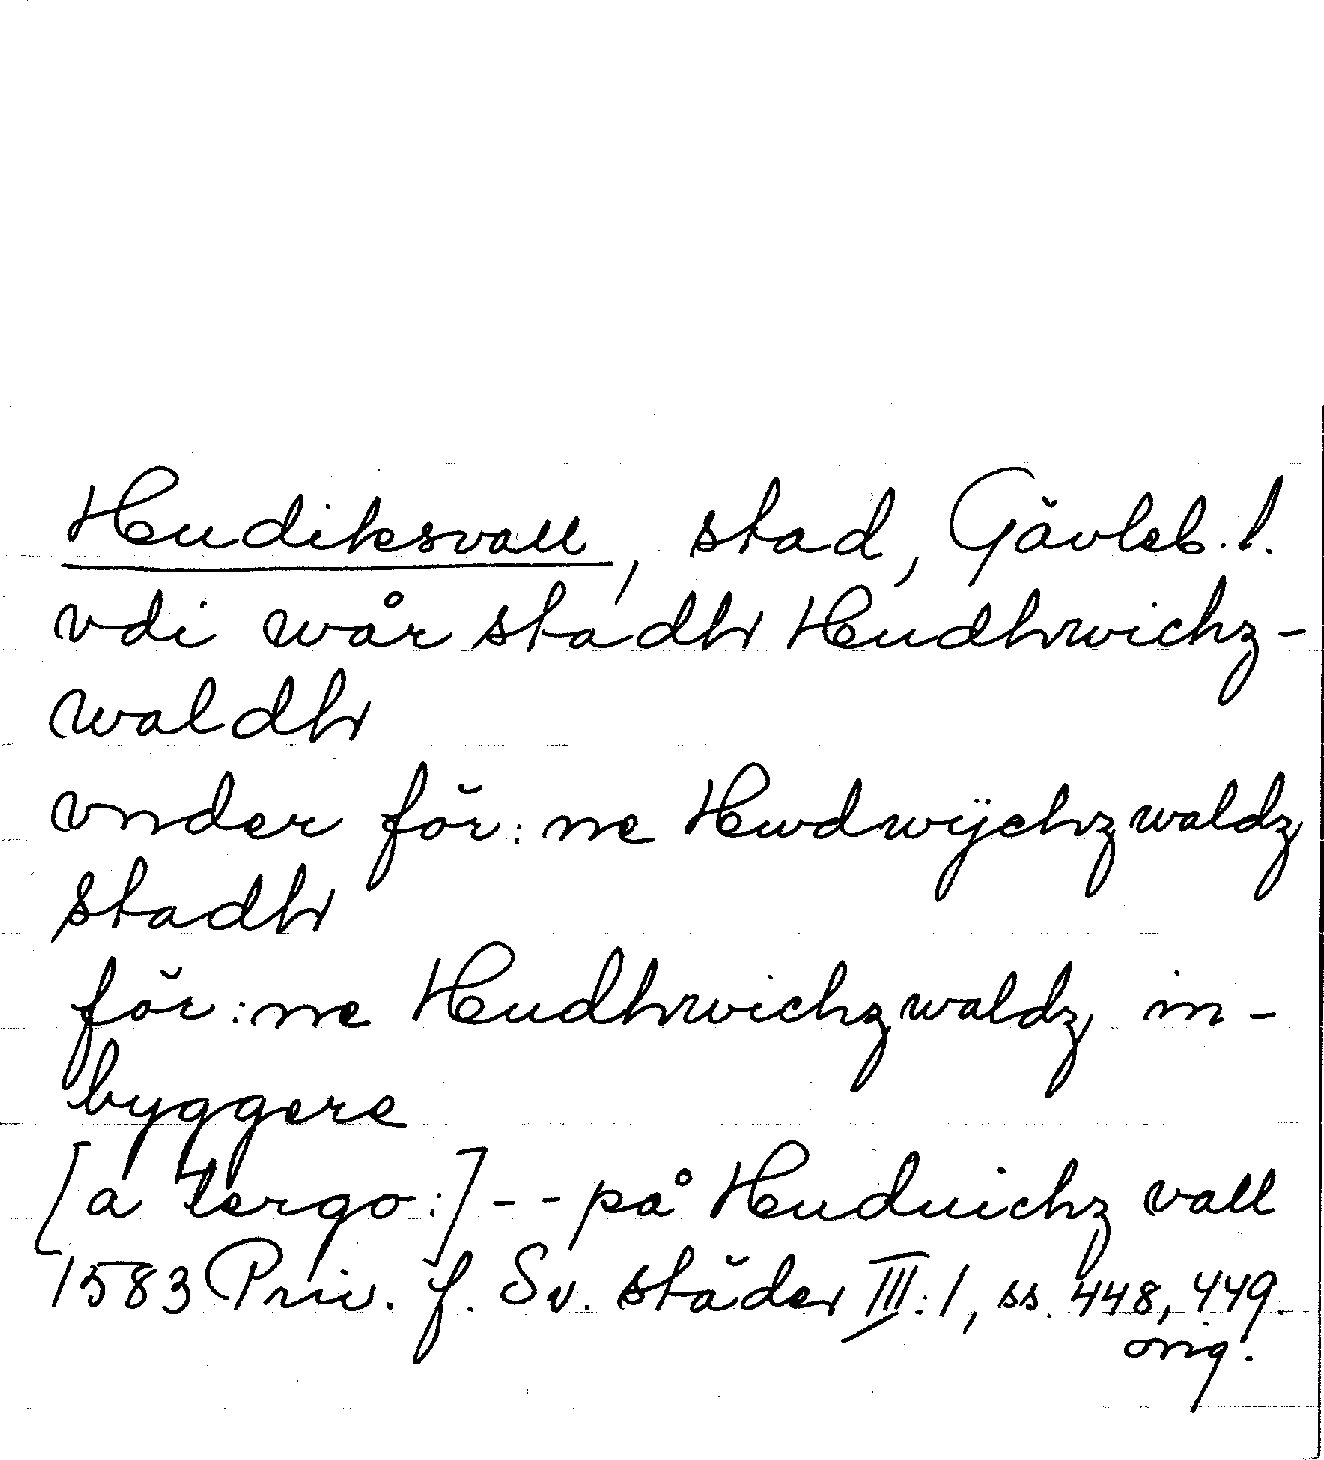 Hudiksvall, stad, Gävleb. l.
vdi wår stadh Hudhwichz-
waldh
vnder för:ne Hwdwÿchz waldz
stadh
för:ne Hudhwichz waldz in-
byggere
[a tergo:] -- på Huduichz vall
1583 Priv. f. Sv. städer III:1, ss. 448, 449.
orig.